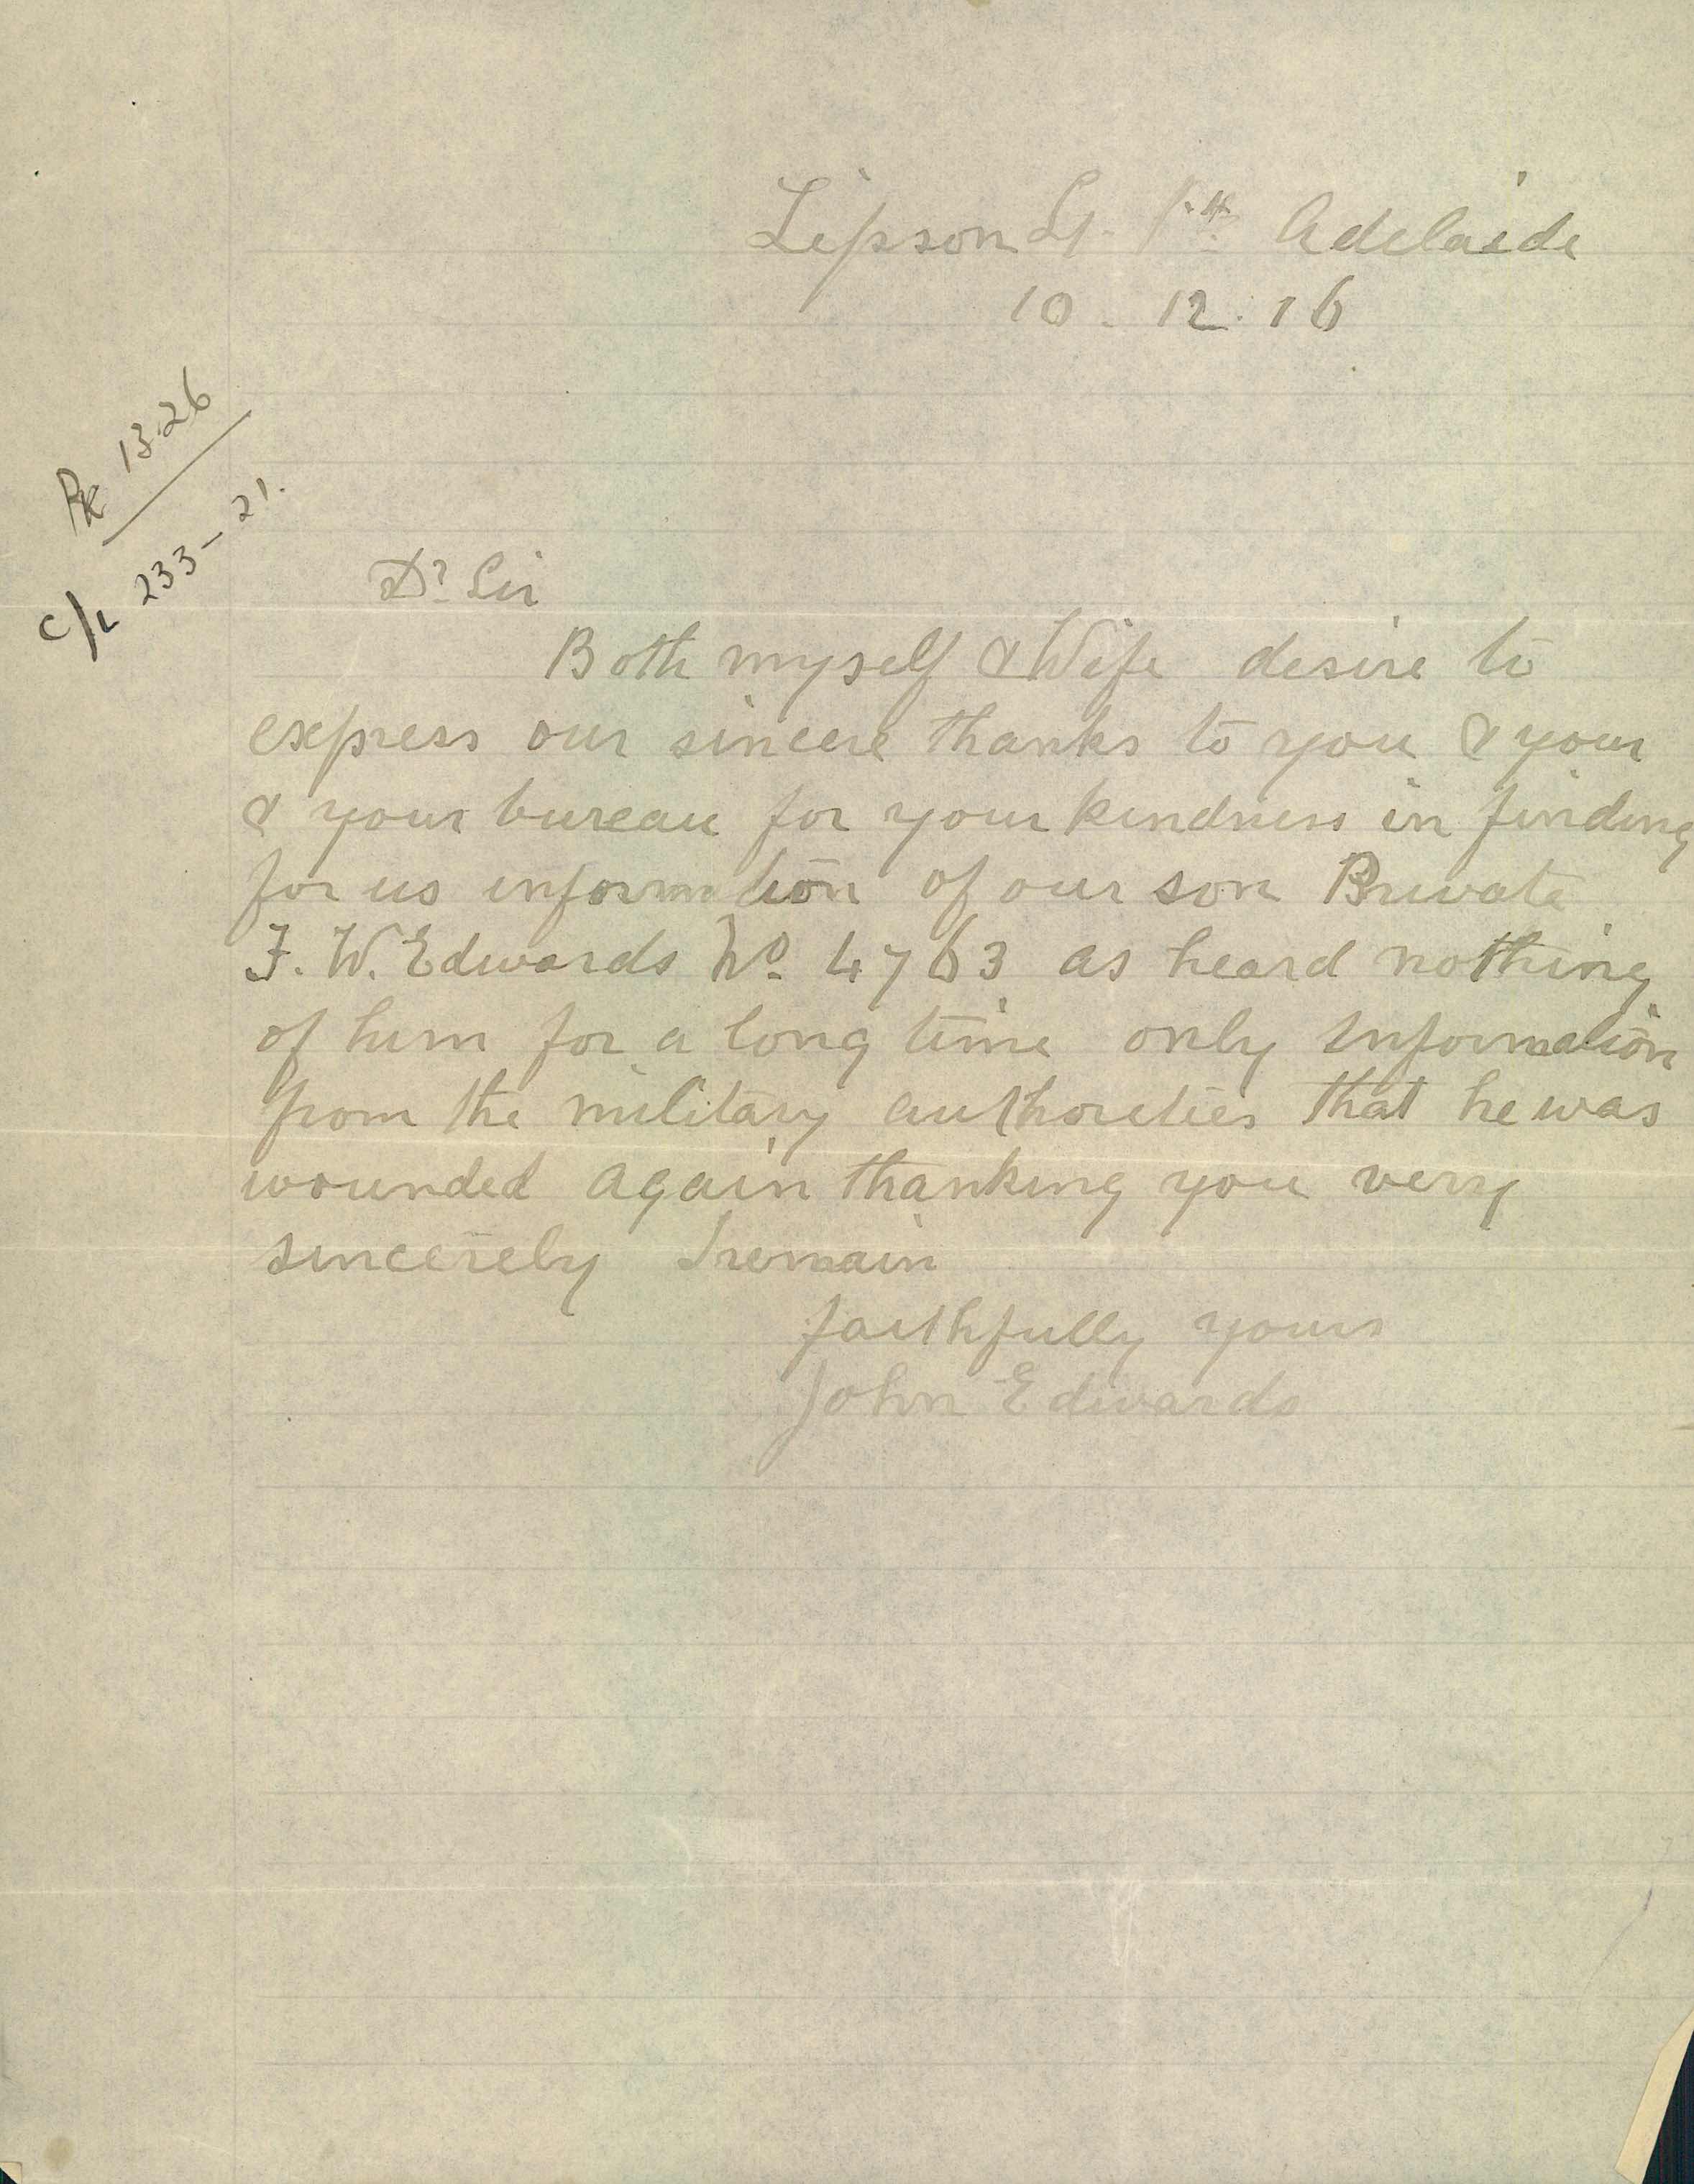 Lipson St. Pt. Adelaide
10. 12. 16
Pk 13.26
C/L 233-21.
Dr Sir
Both myself & Wife desire to
express our sincere thanks to you & your
& your bureau for your kindness in finding
for us information of our son Private
F. W. Edwards No. 4763 as heard nothing
of him for a long time only Information
from the military authorities that he was
wounded again thanking you very
sincerely I remain
faithfully yours
John Edwards